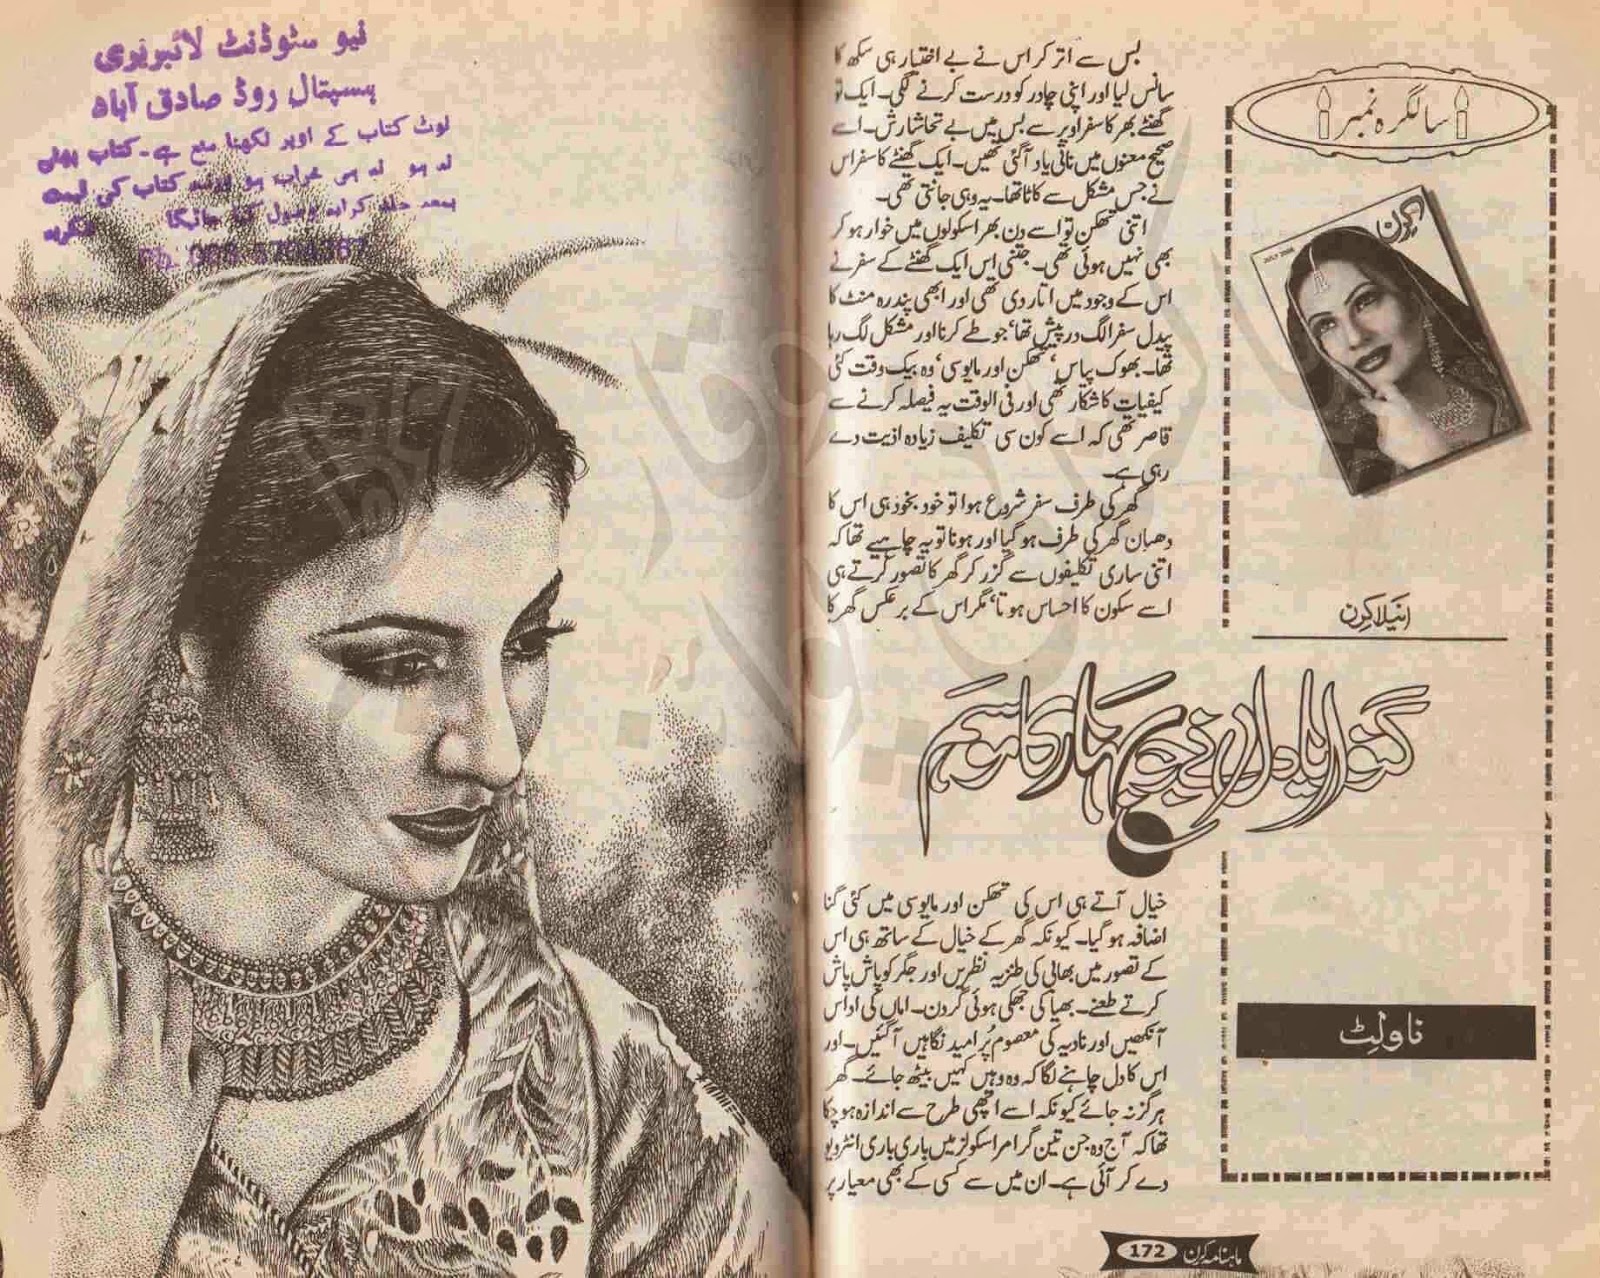 نیو سٹوڈنٹ لائبریری
ہسپتال روڈ صادق آباد
نوٹ کتاب کے اوپر لکھنا منع ہے۔ کتاب پھٹی
نہ ہو نہ ہی خراب ہو ورنہ کتاب کی قیمت
بمعہ جلد کرایہ وصول کیا جائیگا شکریہ
سالگرہ نمبر
کرن
JULY 2008
بس سے اتر کر اس نے بے اختیار ہی سکھ کا
سانس لیا اور اپنی چادر کو درست کرنے لگی۔ ایک تو
گھنٹے بھر کا سفر اوپر سے بس میں بے تحاشا رش۔ اسے
صحیح معنوں میں نانی یاد آ گئی تھیں۔ ایک گھنٹے کا سفر اس
نے جس مشکل سے کاٹا تھا۔ یہ وہی جانتی تھی۔
اتنی تھکن تو اسے دن بھر اسکولوں میں خوار ہو کر
بھی نہیں ہوئی تھی۔ جتنی اس ایک گھنٹے کے سفر نے
اس کے وجود میں اتار دی تھی اور ابھی پندرہ منٹ کا
پیدل سفر الگ درپیش تھا، جو طے کرنا اور مشکل لگ رہا
تھا۔ بھوک پیاس، تھکن اور مایوسی، وہ بیک وقت کئی
کیفیات کا شکار تھی اور فی الوقت یہ فیصلہ کرنے سے
قاصر تھی کہ اسے کون سی تکلیف زیادہ اذیت دے
رہی ہے۔
گھر کی طرف سفر شروع ہوا تو خود بخود ہی اس کا
دھیان گھر کی طرف ہو گیا اور ہونا تو یہ چاہیے تھا کہ
اتنی ساری تکلیفوں سے گزر کر گھر کا تصور کرتے ہی
اسے سکون کا احساس ہوتا، مگر اس کے برعکس گھر کا
انیلا کرن
گنوایا دل نے جو بہار کا موسم
خیال آتے ہی اس کی تھکن اور مایوسی میں کئی گنا
اضافہ ہو گیا۔ کیونکہ گھر کے خیال کے ساتھ ہی اس
کے تصور میں بھابی کی طنزیہ نظریں اور جگر کو پاش پاش
کرتے طعنے۔ بھیا کی جھکی ہوئی گردن۔ اماں کی اداس
آنکھیں اور نادیہ کی معصوم پُر امید نگاہیں آ گئیں۔ اور
اس کا دل چاہنے لگا کہ وہ وہیں کہیں بیٹھ جائے۔ گھر
ہرگز نہ جائے کیونکہ اسے اچھی طرح سے اندازہ ہو چکا
تھا کہ آج وہ جن تین گرامر اسکولز میں باری باری انٹرویو
دے کر آئی ہے۔ ان میں سے کسی کے بھی معیار پر
ناولٹ
ماہنامہ کرن 172